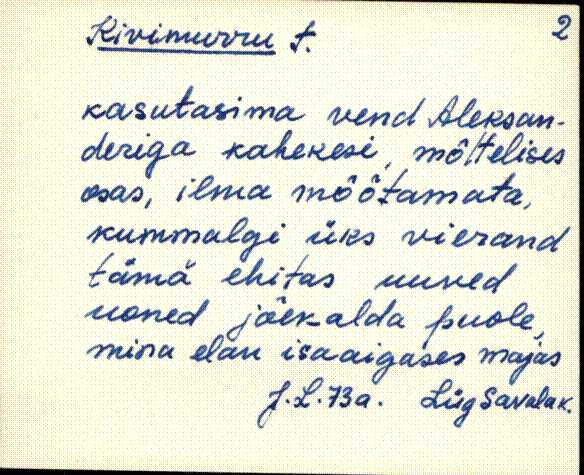 Kivimurru t. 2
kasutasima vend Aleksan-
deriga kahekesi, mõttelises
osas, ilma mõõtamata,
kummalgi üks vierand
tämä ehitas uuved
uoned jõekalda puole,
mina elan isaaigases majas
J.L. 73a. Lüg Savalak.